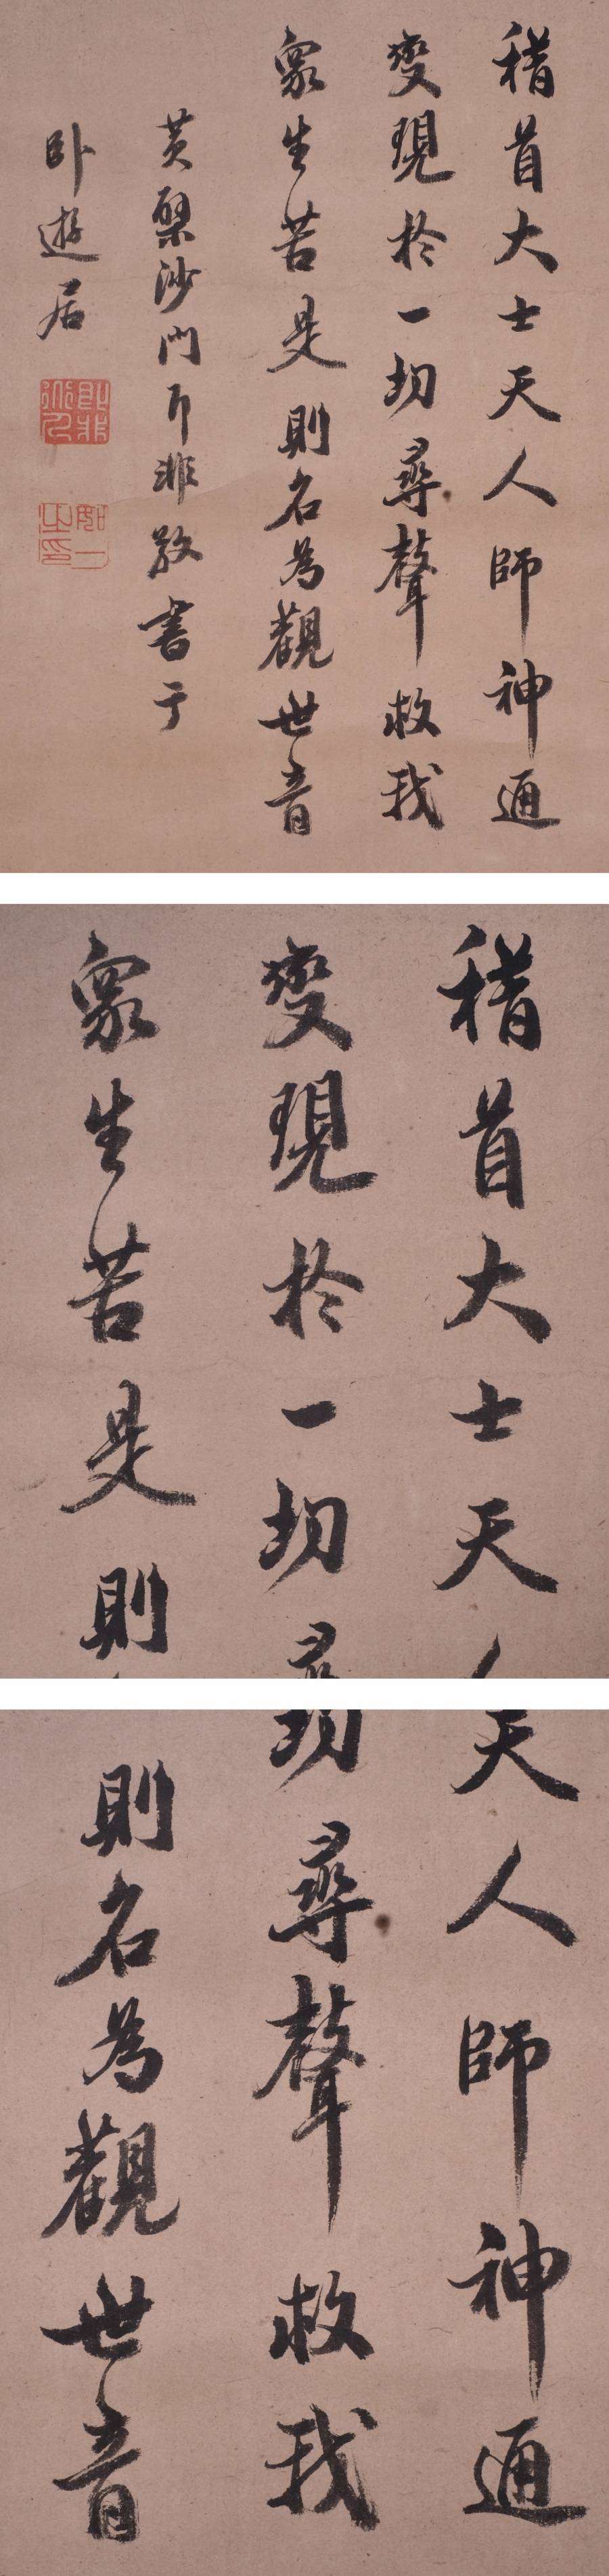 稽首大士天人師神通
變現於一切尋聲救我
眾生苦是則名為觀世音
黃檗沙門即非敬書于
臥遊居
即非
如一
之印
稽首大士天
變現於一切尋
眾生苦是則
天人師神通
切尋聲救我
則名為觀世音